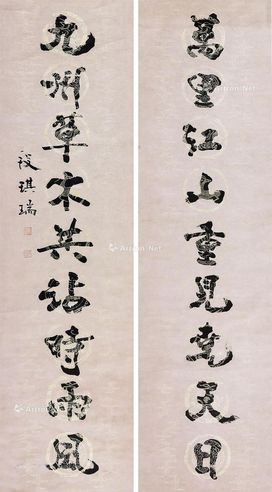 萬里江山重見堯天日
九州草木共沾時雨風
段祺瑞
Artron.Net